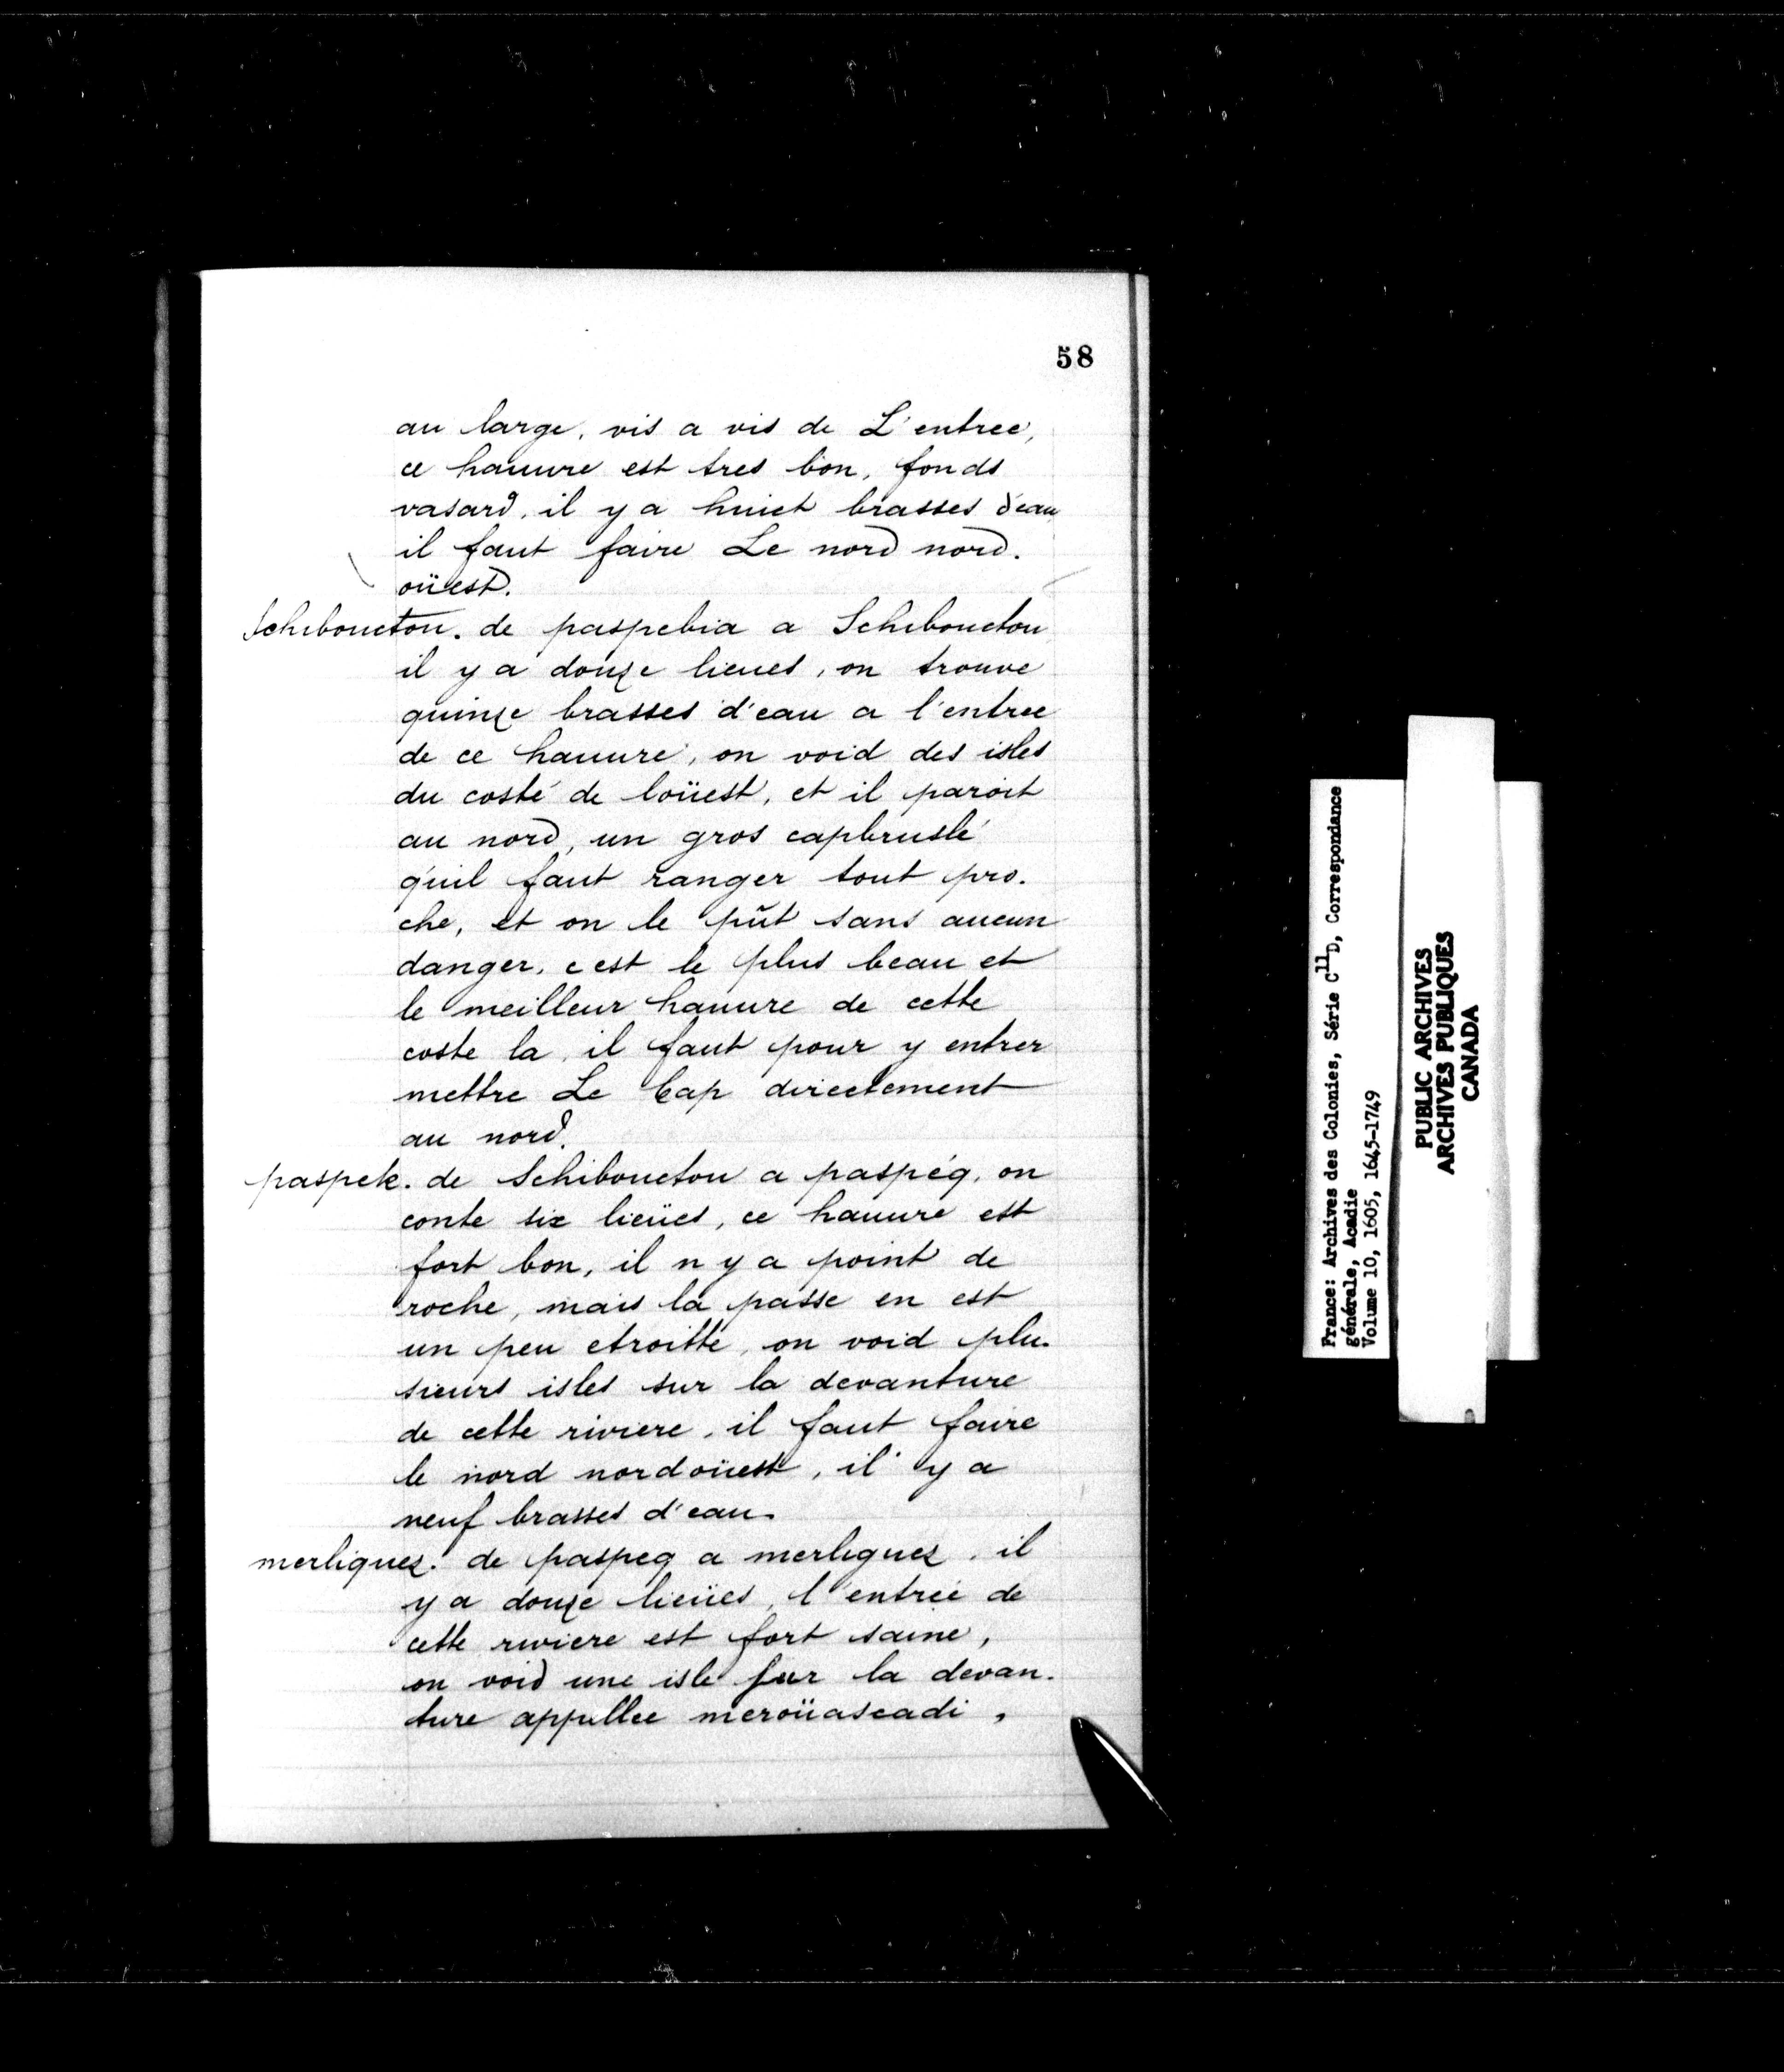 58
au large, vis a vis de L'entree,
ce hauure est tres bon, fonds
vasard, il y a huict brasses d'eau
il faut faire Le nord nord.
oüest.
Schibouctou. de paspebia a Schibouctou
il y a douze lieues, on trouve
quinze brasses d'eau a l'entree
de ce hauure, on void des isles
du costé de loüest, et il paroit
au nord, un gros capbruslé
qu'il faut ranger tout pro.
che, et on le pût sans aucun
danger, c est le plus beau et
le meilleur hauure de cette
coste la, il faut pour y entrer
mettre Le Cap directement
au nord.
paspek. de Schibouctou a paspég, on
conte six lieües, ce hauure est
fort bon, il n y a point de
roche, mais la passe en est
un peu etroitte, on void plu.
sieurs isles sur la devanture
de cette riviere, il faut faire
le nord nordoüest, il y a
neuf brasses d'eau.
merliquez. de paspeg a merliguez, il
y a douze lieües, l'entrée de
cette riviere est fort saine,
on void une isle sur la devan.
ture appellee meroüascadi,
France: Archives des Colonies, Série C11D, Correspondance
générale, Acadie
Volume 10, 1605, 1645-1749
PUBLIC ARCHIVES
ARCHIVES PUBLIQUES
CANADA